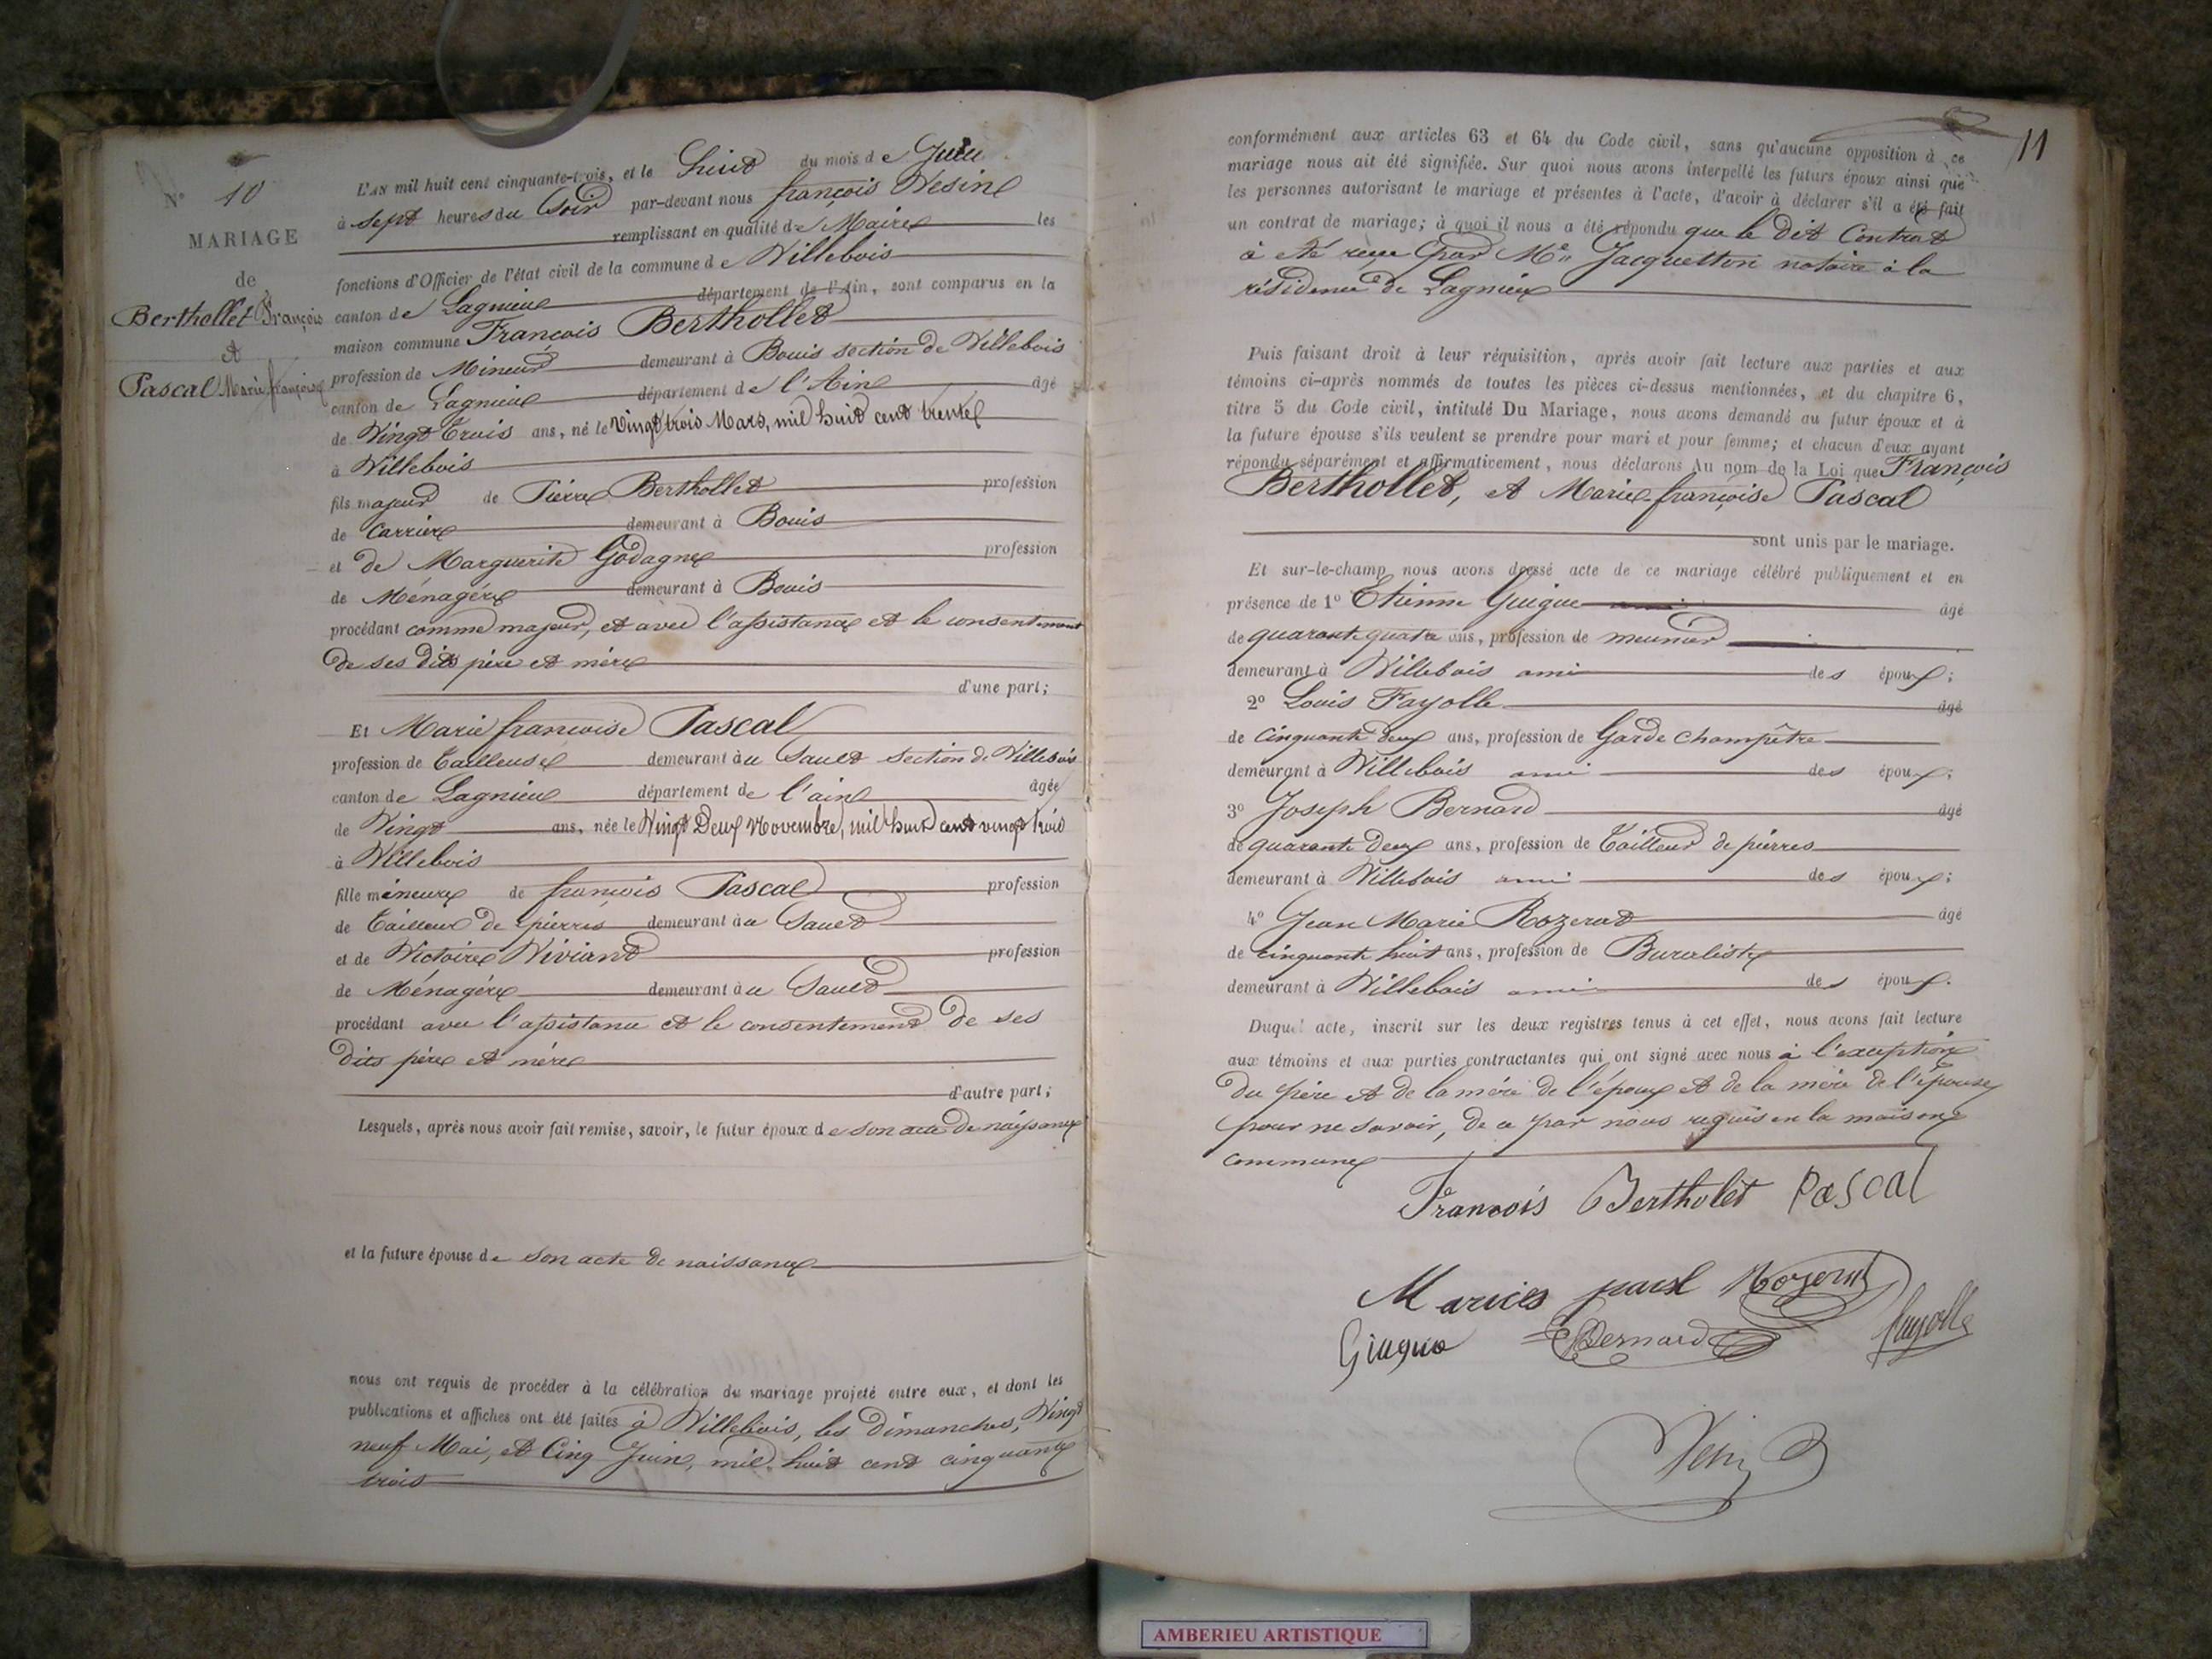 N° 10
MARIAGE
de
Berthollet François
et
Pascal Marie françoise
L'AN mil huit cent cinquante-trois, et le huit du mois de Juin
à sept heures du Soir par-devant nous françois Vesin
remplissant en qualité de Maire les
fonctions d'Officier de l'état civil de la commune de Villebois
canton de Lagnieu département de l'Ain, sont comparus en la
maison commune François Berthollet
profession de Mineur demeurant à Bouis section de Villebois
canton de Lagnieu département de l'Ain âgé
de Vingt Trois ans, né le Vingt trois Mars, mil huit cent trente
à Villebois
fils majeur de Pierre Berthollet profession
de Carrier demeurant à Bouis
et de Marguerite Godagne profession
de Ménagère demeurant à Bouis
procédant comme majeur, et avec l'assistance et le consentement
de ses dits père et mère
d'une part;
Et Marie françoise Pascal
profession de Tailleuse demeurant au Sault section de Villebois
canton de Lagnieu département de l'ain âgée
de Vingt ans, née le Vingt Deux Novembre, mil huit cent vingt trois
à Villebois
fille mineure de françois Pascal profession
de Tailleur de pierres demeurant au Sault
et de Victoire Viviant profession
de Ménagère demeurant au Sault
procédant avec l'assistance et le consentement de ses
dits père et mère
d'autre part;
Lesquels, après nous avoir fait remise, savoir, le futur époux de son acte de naissance
et la future épouse de son acte de naissance
nous ont requis de procéder à la célébration du mariage projeté entre eux, et dont les
publications et affiches ont été faites à Villebois, les Dimanches, Vingt
neuf Mai, et Cinq Juin, mil huit cent cinquante
trois
11
conformément aux articles 63 et 64 du Code civil, sans qu'aucune opposition à ce
mariage nous ait été signifiée. Sur quoi nous avons interpellé les futurs époux ainsi que
les personnes autorisant le mariage et présentes à l'acte, d'avoir à déclarer s'il a été fait
un contrat de mariage; à quoi il nous a été répondu que le dit Contrat
à été reçu par Me Jacquetton notaire à la
résidence de Lagnieu
Puis faisant droit à leur réquisition, après avoir fait lecture aux parties et aux
témoins ci-après nommés de toutes les pièces ci-dessus mentionnées, et du chapitre 6,
titre 5 du Code civil, intitulé Du Mariage, nous avons demandé au futur époux et à
la future épouse s'ils veulent se prendre pour mari et pour femme; et chacun d'eux ayant
répondu séparément et affirmativement, nous déclarons Au nom de la Loi que François
Berthollet, et Marie françoise Pascal
sont unis par le mariage.
Et sur-le-champ nous avons dressé acte de ce mariage célébré publiquement et en
présence de 1° Etienne Guigue âgé
de quarante quatre ans, profession de meunier
demeurant à Villebois ami des époux;
2° Louis Fayolle âgé
de Cinquante deux ans, profession de Garde Champêtre
demeurant à Villebois ami des époux;
3° Joseph Bernard âgé
de quarante Deux ans, profession de Tailleur de pierres
demeurant à Villebois ami des époux;
4° Jean Marie Rozerat âgé
de cinquante huit ans, profession de Buraliste
demeurant à Villebois ami des époux.
Duquel acte, inscrit sur les deux registres tenus à cet effet, nous avons fait lecture
aux témoins et aux parties contractantes qui ont signé avec nous à l'exception
Du père et de la mère de l'époux et de la mère de l'épouse
pour ne savoir, de ce par nous requis en la maison
commune
François Bertholet Pascal
Bernard
Fayolle
AMBERIEU ARTISTIQUE